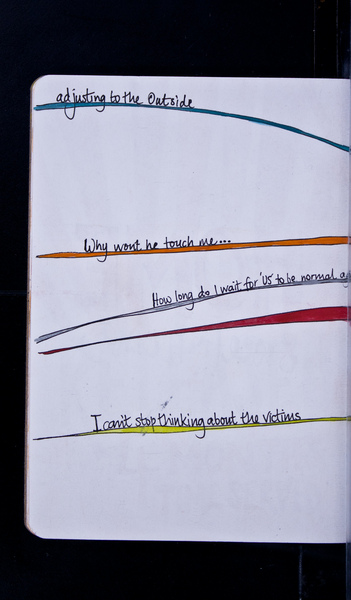 adjusting to the Outside
Why wont he touch me...
How long do I wait for 'US' to be normal a
I can't stop thinking about the victims